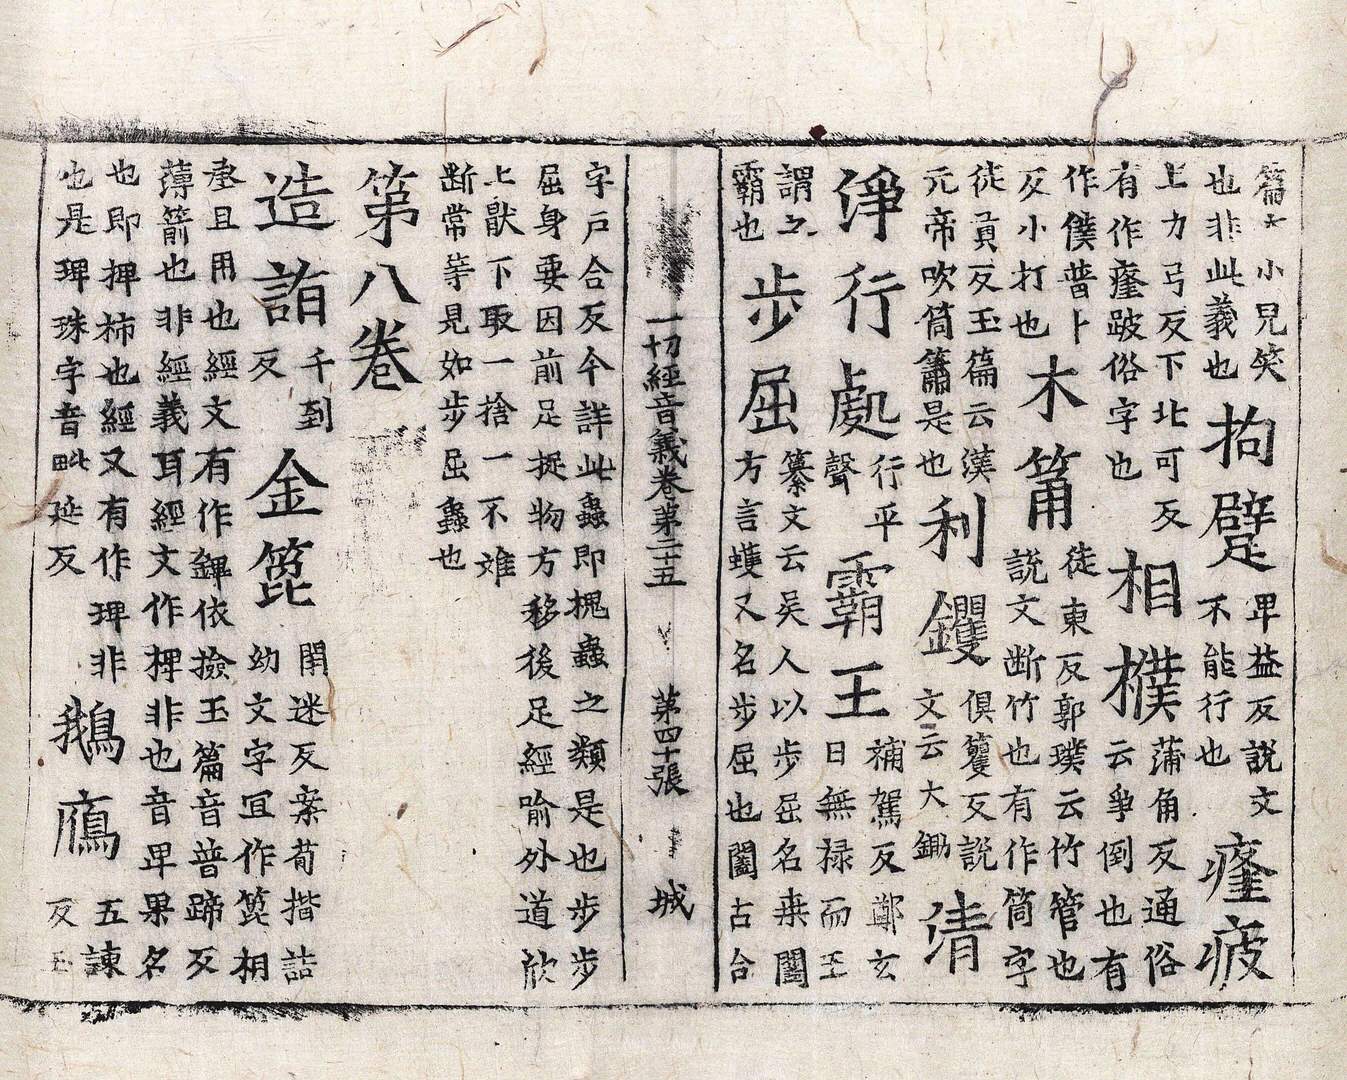 篇云小兒笑也非此義也拘躄卑益反說文不能行也癃疲
上力弓反下北可反有作癃跛俗字也相撲蒲角反通俗云爭倒也有
作僕普卜反小打也木筩徒東反郭璞云竹管也說文断竹也有作筒字
徒貢反玉篇云漢元帝吹筒簫是也利钁俱籰反說文云大鋤清
淨行處行平聲霸王補駕反鄭玄曰無禄而王
謂之霸也步屈纂文云吴人以步屈名桒闔方言蠖又名步屈也闔古合
一切經音義卷第二十五 第四十張 城
字戶合反今詳此蟲即槐蟲之類是也步步屈身要因前足捉物方移後足經喻外道欣
上猒下取一捨一不離断常等見如步屈蟲也
第八卷
造詣千到反金箆閉迷反案荀揩詰幼文字冝作箆相
承且用也經文有作錍依撿玉篇音普蹄反薄箭也非經義耳經文作椑非也音卑果名
也即捭柿也經又有作琕非也是琕珠字音毗延反鵝鴈五諫反玉